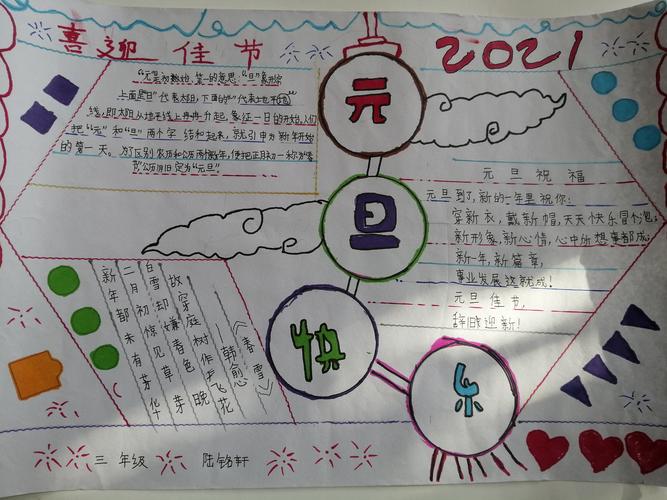 喜迎佳节
2021
元
旦
快
乐
"元"是初 始、第一的意思;"旦"象形字
上面是"日"代表太阳,下面的"一"代表 地平
线。即太阳从地平线上冉冉升起,象征一日的开始。人们
把"元"和"旦"两个字结和起来,就引申为新年开始
的第一天。为了区别农历和公历两个新年,便把正月初一称为"春
节"公历1月1日定为"元旦"
元旦祝福
元旦到了,新的一年里祝你:
穿新衣,戴新帽,天天快乐冒个泡;
新形象,新心情,心中所想事都成;
新一年,新篇章,
事业发展这就成!
元旦佳节,
辞旧迎新!
《春雪》
韩愈
新年都未有芽华
二月初惊见草芽
白雪却嫌春色晚
故穿庭树作飞花
三年级 陆铭轩